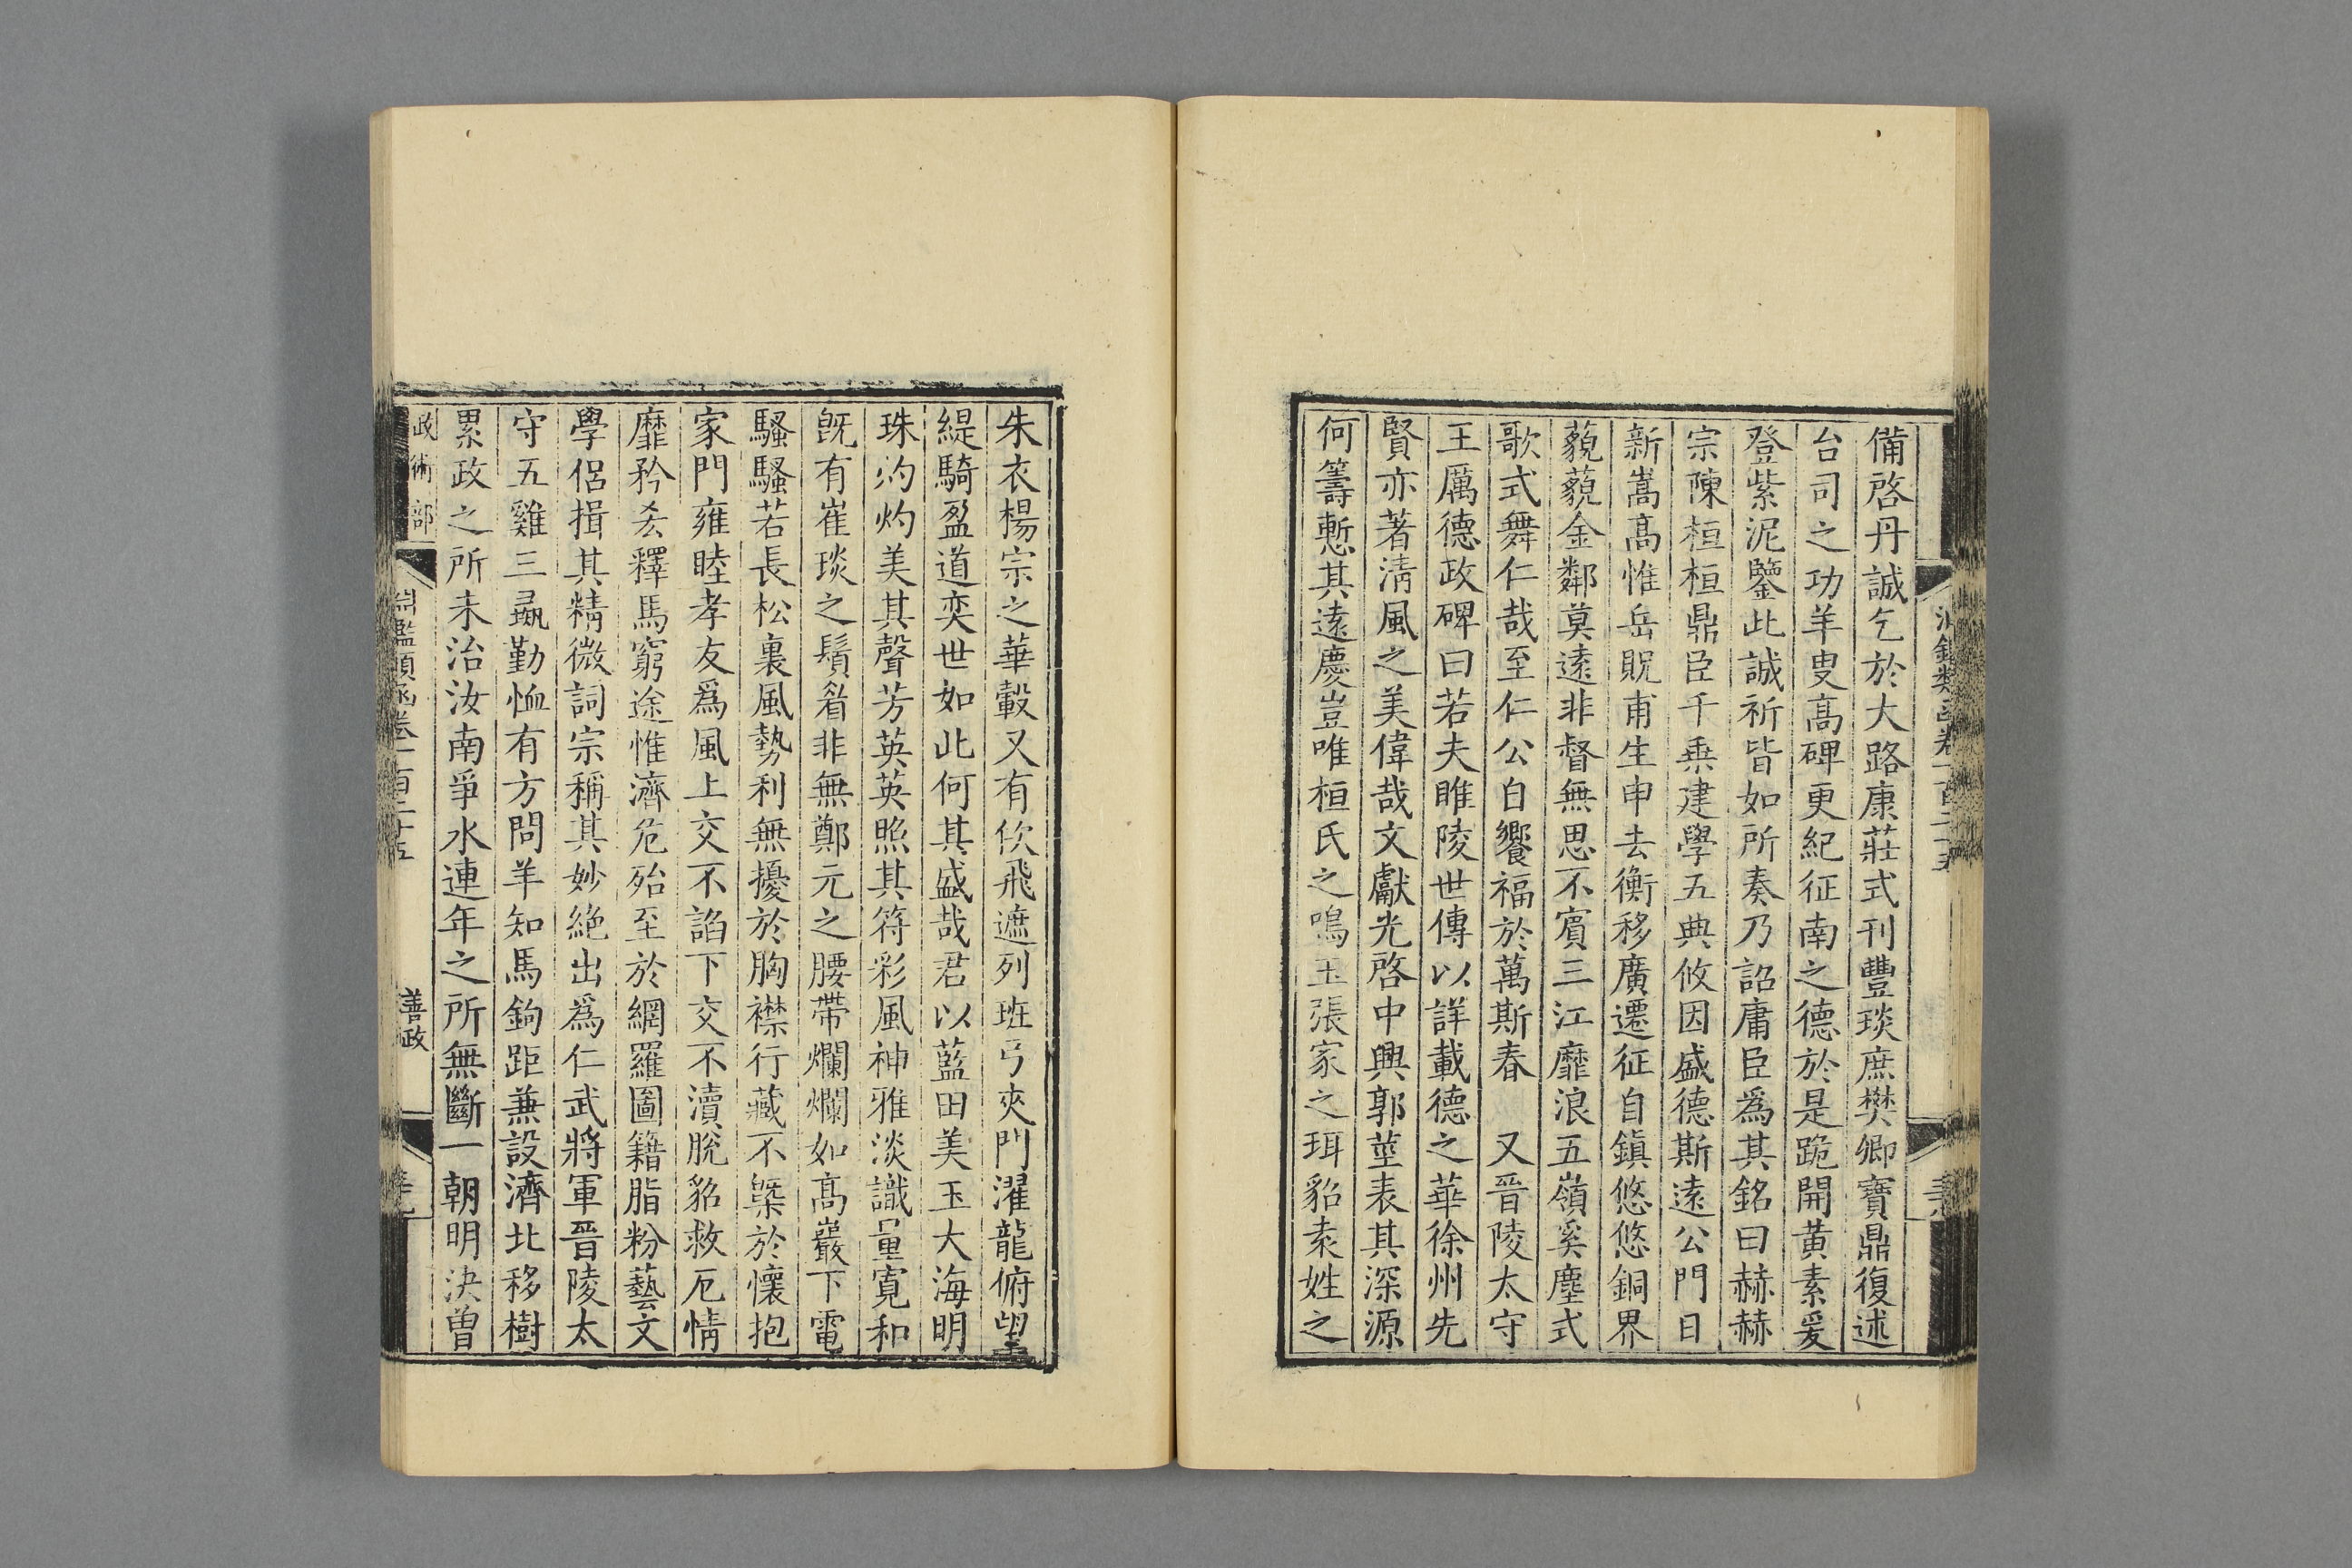 備啓丹誠乞於大路康莊式刊豐琰庶樊卿寶鼎復述
台司之功羊叟高碑更紀征南之德於是跪開黃素爰
登紫泥鑒此誠祈皆如所奏乃詔庸臣爲其銘曰赫赫
宗陳桓桓鼎臣千乗建學五典攸因盛德斯遠公門日
新嵩高惟岳貺甫生申去衡移廣遷征自鎮悠悠銅界
藐藐金鄰莫遠非督無思不賓三江靡浪五嶺奚塵式
歌式舞仁哉至仁公白饗福於萬斯春　又晉陵太守
王厲德政碑曰若夫睢陵世傳以詳載德之華徐州先
賢亦著清風之美偉哉文獻光啓中興郭莖表其深源
何籌慙其遠慶豈唯桓氏之鳴玉張家之珥貂袁姓之
朱衣楊宗之華轂又有佽飛遮列班弓夾門濯龍俯望
緹騎盈道奕世如此何其盛哉君以藍田美玉大海明
珠灼灼美其聲芳英英照其符彩風神雅淡識量寬和
旣有崔琰之鬚眉非無鄭元之腰帶爛爛如高巖下電
騷騷若長松裏風勢利無擾於胸襟行藏不槩於懷抱
家門雍睦孝友爲風上交不諂下交不瀆脫貂救厄情
靡矜𠫤釋馬窮途惟濟危殆至於網羅圖籍脂粉藝文
學侶揖其精微詞宗稱其妙絶出爲仁武將軍晉陵太
守五雞三彘勤恤有方問羊知馬鉤距兼設濟北移樹
累政之所未治汝南爭水連年之所無斷一朝明決曾
政術部
淵鑑類函卷一百二十五
善政